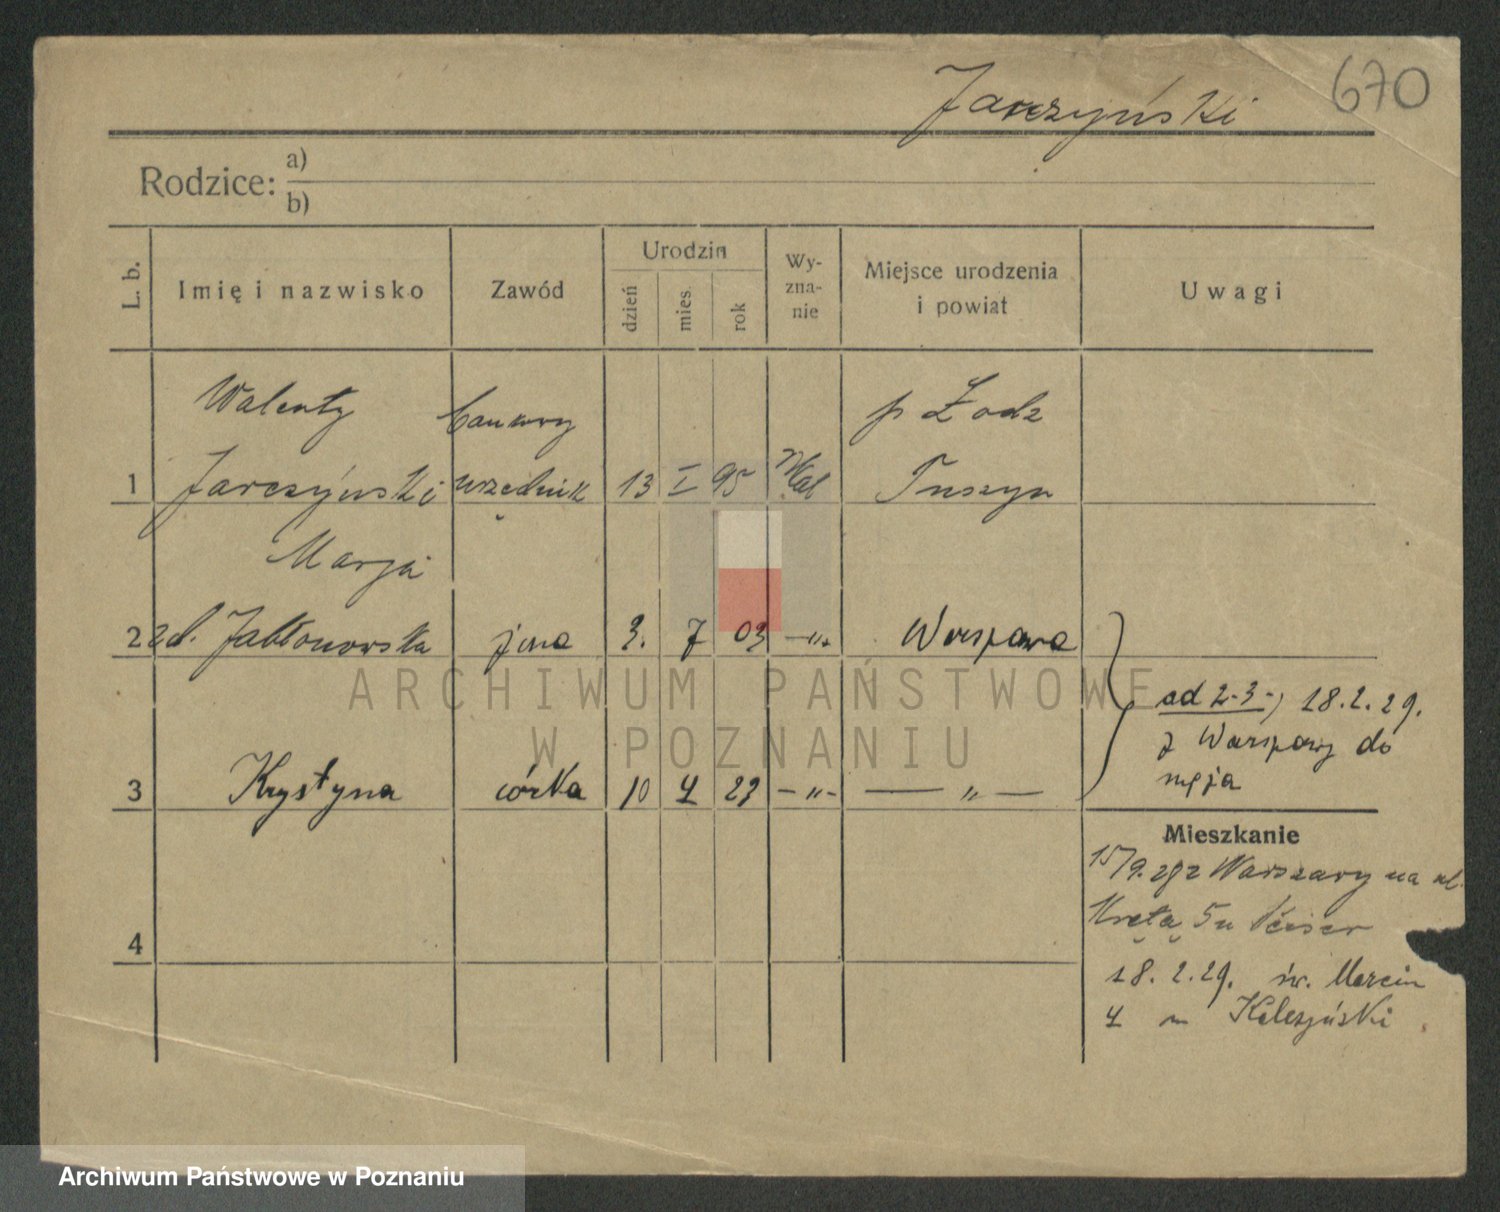 670
Jarczyński
Rodzice: a)
b)
L. b. Imię i nazwisko Zawód Urodzin dzień mies. rok Wy-zna-nie Miejsce urodzenia i powiat Uwagi
Walenty bankowy p Łodz
1 Jarczyński urzędnik 13 I 95 Tuszyn
Marja
2 zd. Jabłonowska żona 3. 7 03 -"- Warszawa
od 2-3-, 18.2.29.
z Warszawy do
męża
3 Krystyna córka 10 4 23 -"- — " —
Mieszkanie
15/9. 28 z Warszawy na ul.
Krętą 5 u
4
18. 2. 29. św. Marcin
4 m
ARCHIWUM PAŃSTWOWE
W POZNANIU
Archiwum Państwowe w Poznaniu